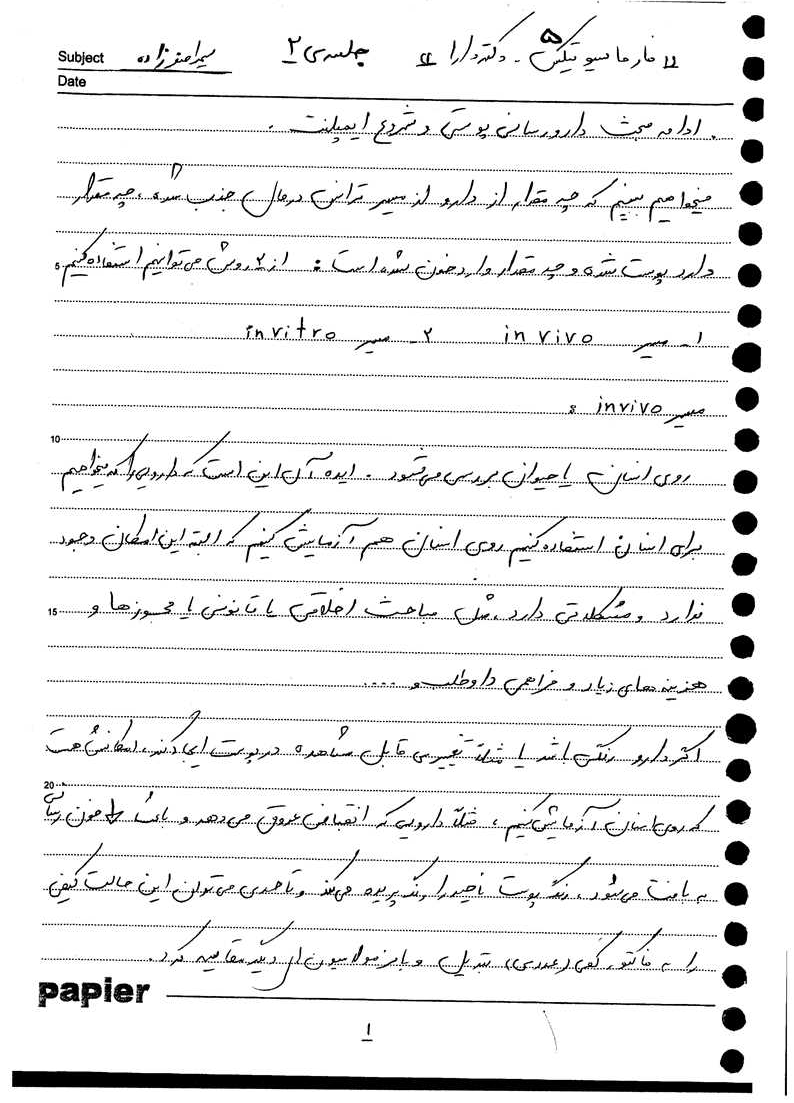 «فارماسیوتیکس ۵ - دکتر دارا» جلسه‌ی ۲
Subject
Date
. ادامه مبحث دارورسانی پوستی و شروع ایمپلنت .
میخواهیم ببینیم که چه مقدار از دارو از مسیر ترانس درمال جذب شده، چه مقدار
5 وارد پوست شده و چه مقدار وارد خون شده است : از ۲ روش می‌توانیم استفاده کنیم
۱- مسیر in vivo ۲- مسیر invitro
مسیر invivo :
10
روی انسان یا حیوان بررسی می‌شود . ایده آل این است که دارویی را که میخواهیم
برای انسان استفاده کنیم روی انسان هم آزمایش کنیم که البته این امکان وجود
15 ندارد و مشکلاتی دارد، مثل مباحث اخلاقی یا قانونی یا مجوزها و
هزینه های زیاد و فراهمی داوطلب و ....
اگر دارو رنگی باشد یا مثلاً تغییری قابل مشاهده در پوست ایجاد کند، امکانش هست
20
که روی انسان آزمایش کنیم ، مثلاً دارویی که انقباض عروق می‌دهد و باعث ↓ خون رسانی
به بافت می‌شود، رنگ پوست ناحیه را رنگ پریده می‌کند و تا حدی می‌توان این حالت کیفی
را به فاکتور کمی (عددی) تبدیل و با فرمولاسیون های دیگر مقایسه کرد.
papier
۱